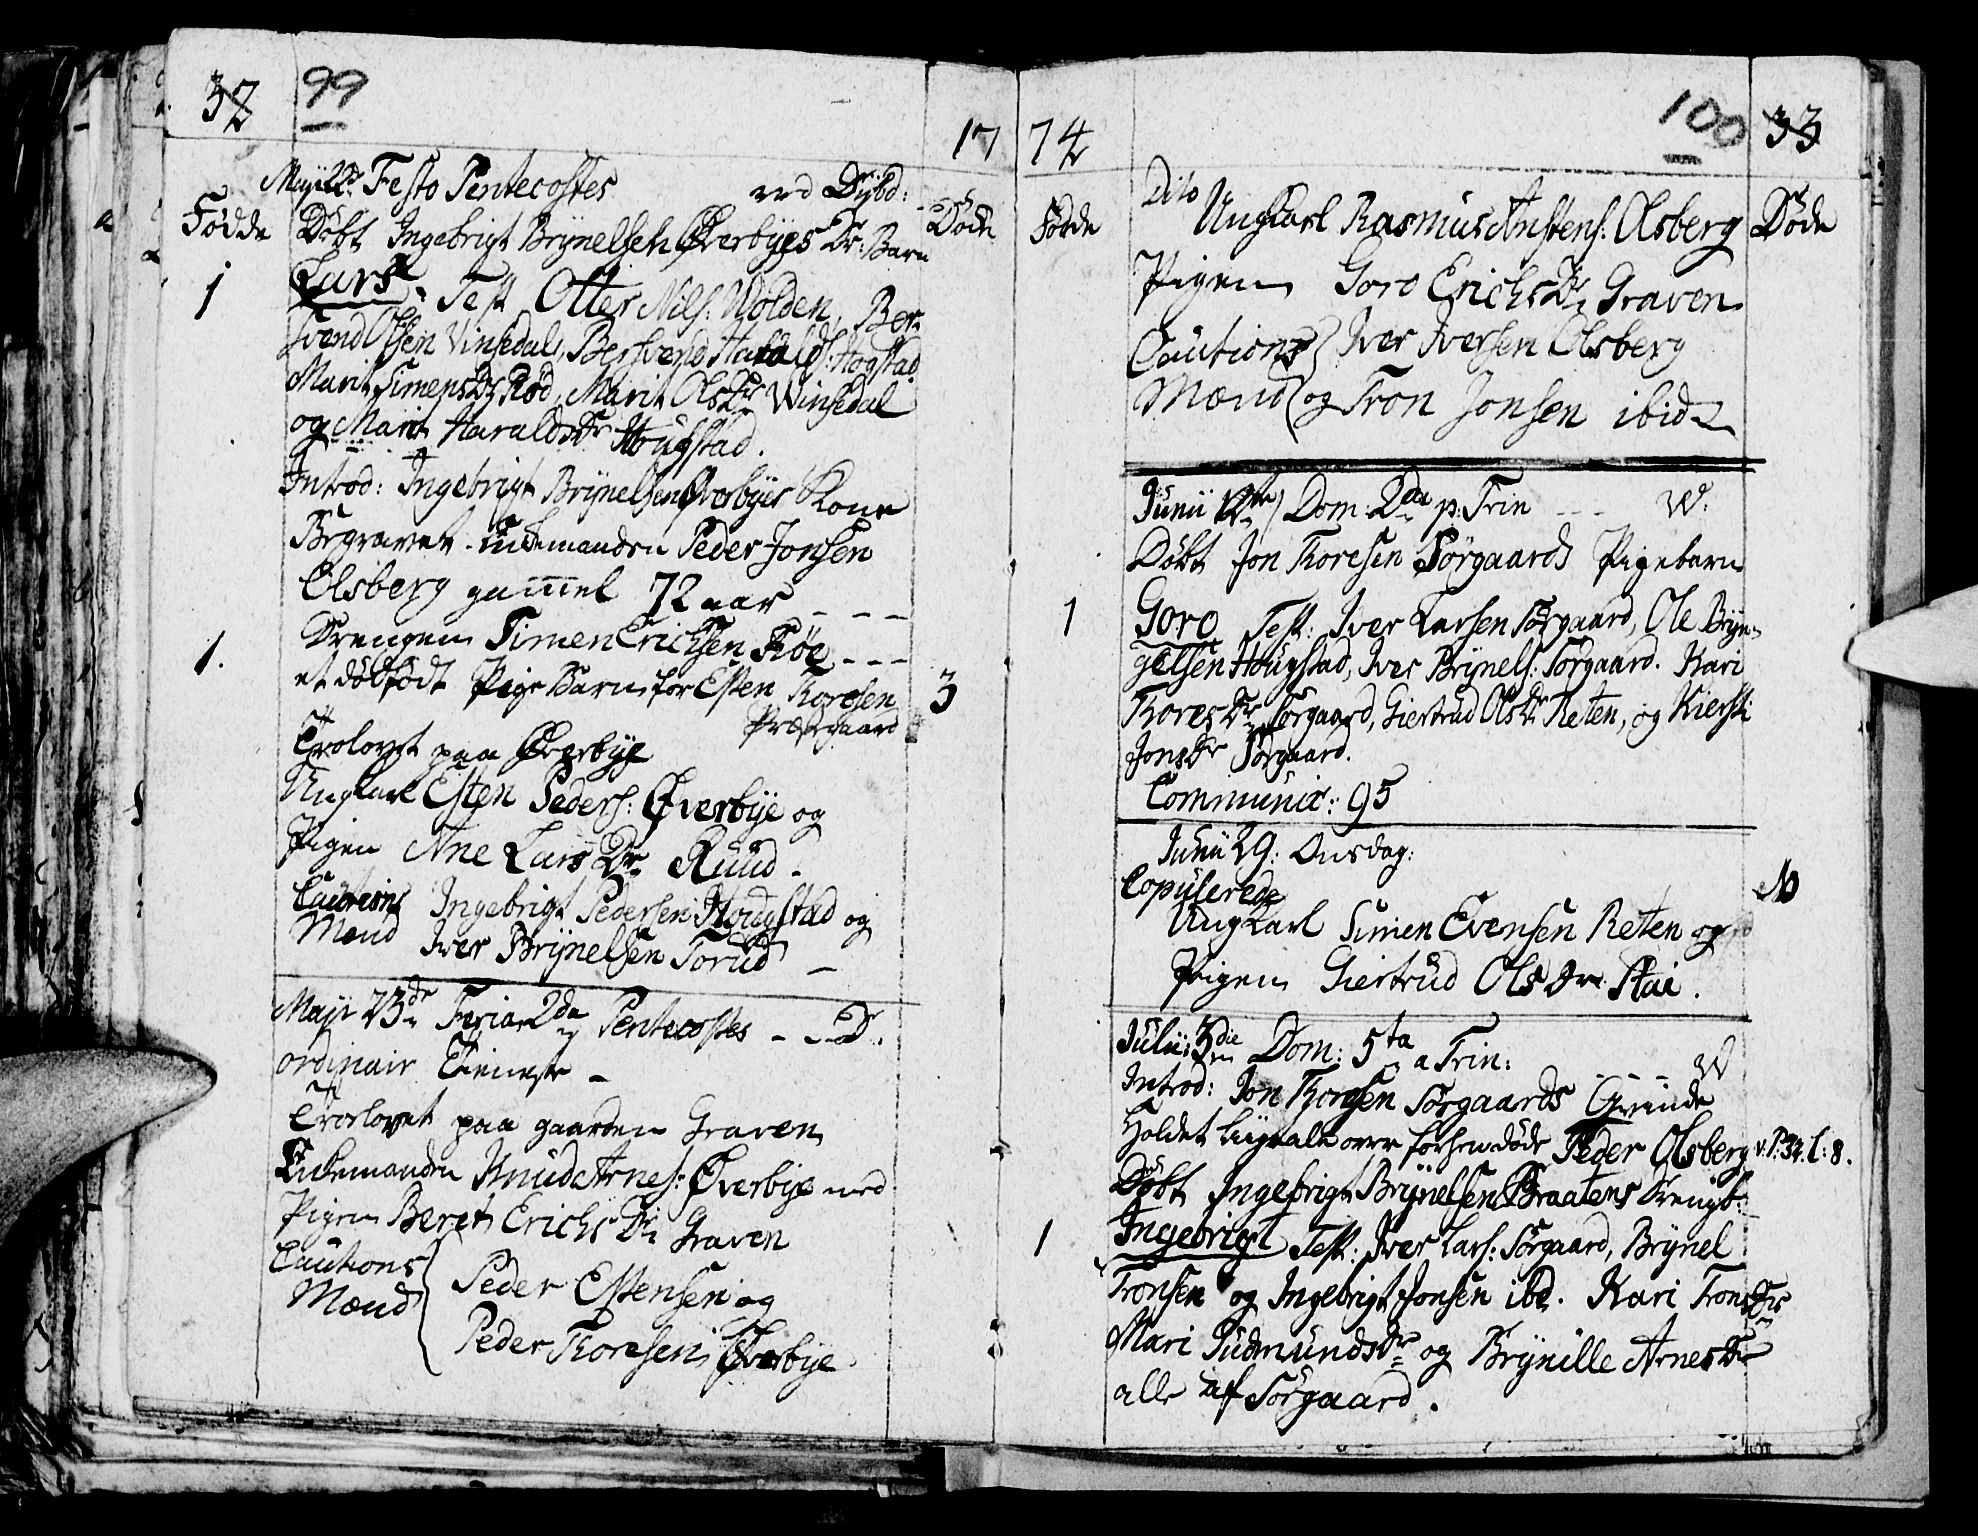 32 99
17
Maji 22de Festo Pentecostes ved Dÿbd:
Födde Döbt Ingebrigt Brÿnelsen Øverbyes Dr: Barn Döde
1 Lars. Test Otter Nils: Wolden, Ber-
svend Olsen Vinsedal, Bersvend Haralds: Hogstad
Marit Simens Dr Röd, Marit Ols Dr Winsedal
og Marit Haralds Dr Hougstad.
Introd: Ingebrigt Brÿnelsen Øverbyes Kone
Begravet Enkemanden Peder Jonsen
Olsberg gammel 72 aar - - -
1. Drengen Simen Erichsen Röe - - -
et dödfödt Pige Barn for Esten Thoresen 3
Præstgaard
Trolovet paa Øverbÿe
Ungkarl Esten Peders: Øverbÿe og
Pigen Ane Lars Dr Ruud.
Cautions Ingebrigt Pedersen Hougstad og
Mænd Iver Brÿnelsen Torud -
Maji 23de Feria 2da Pentecostes - - D.
ordinair Tieneste -
Troelovet paa gaarden Graven
Enkemanden Knud Arnes: Øverbye med
Pigen Beret Erichs Dr Graven
Cautions Peder Estensen og
Mænd Peder Thoresen Øverbye.
74 100 33
Födde Dito Döde
Ungkarl Rasmus Anstens: Olsberg
Pigen Goro Erichs Dr Graven
Cautions Iver Iversen Olsberg
Mænd og Tron Jonsen ibid
Junii 12te Dom: 2da p: Trin - - - W.
Döbt Jon Thoresen Sörgaards Pigebarn
1 Goro Test: Iver Larsen Sörgaard, Ole Brÿn-
gelsen Hougstad, Iver Brÿnels: Sörgaard. Kari
Thores Dr Sörgaard, Giertrud Ols Dr Reten, og Kiersti
Jons Dr Sörgaard.
Communic: 95
Junii 29: Onsdag:
Copulerede
Ungkarl Simen Evensen Reten og
Pigen Giertrud Ols Dr Stai.
Julii 3die Dom: 5ta a Trin: - - - W
Introd: Jon Thoresen Sörgaards Qvinde
Holdet Liigtale over forhen döde Peder Olsberg v. P: 32. l: 8.
Döbt Ingebrigt Brÿnelsen Braatens Drengb:
1 Ingebrigt Test: Iver Lars: Sörgaard, Brÿnel
Tronsen og Ingebrigt Jonsen ibd. Kari Trons Dr
Mari Gudmunds Dr og Brÿnille Arnes Dr
alle af Sörgaard.